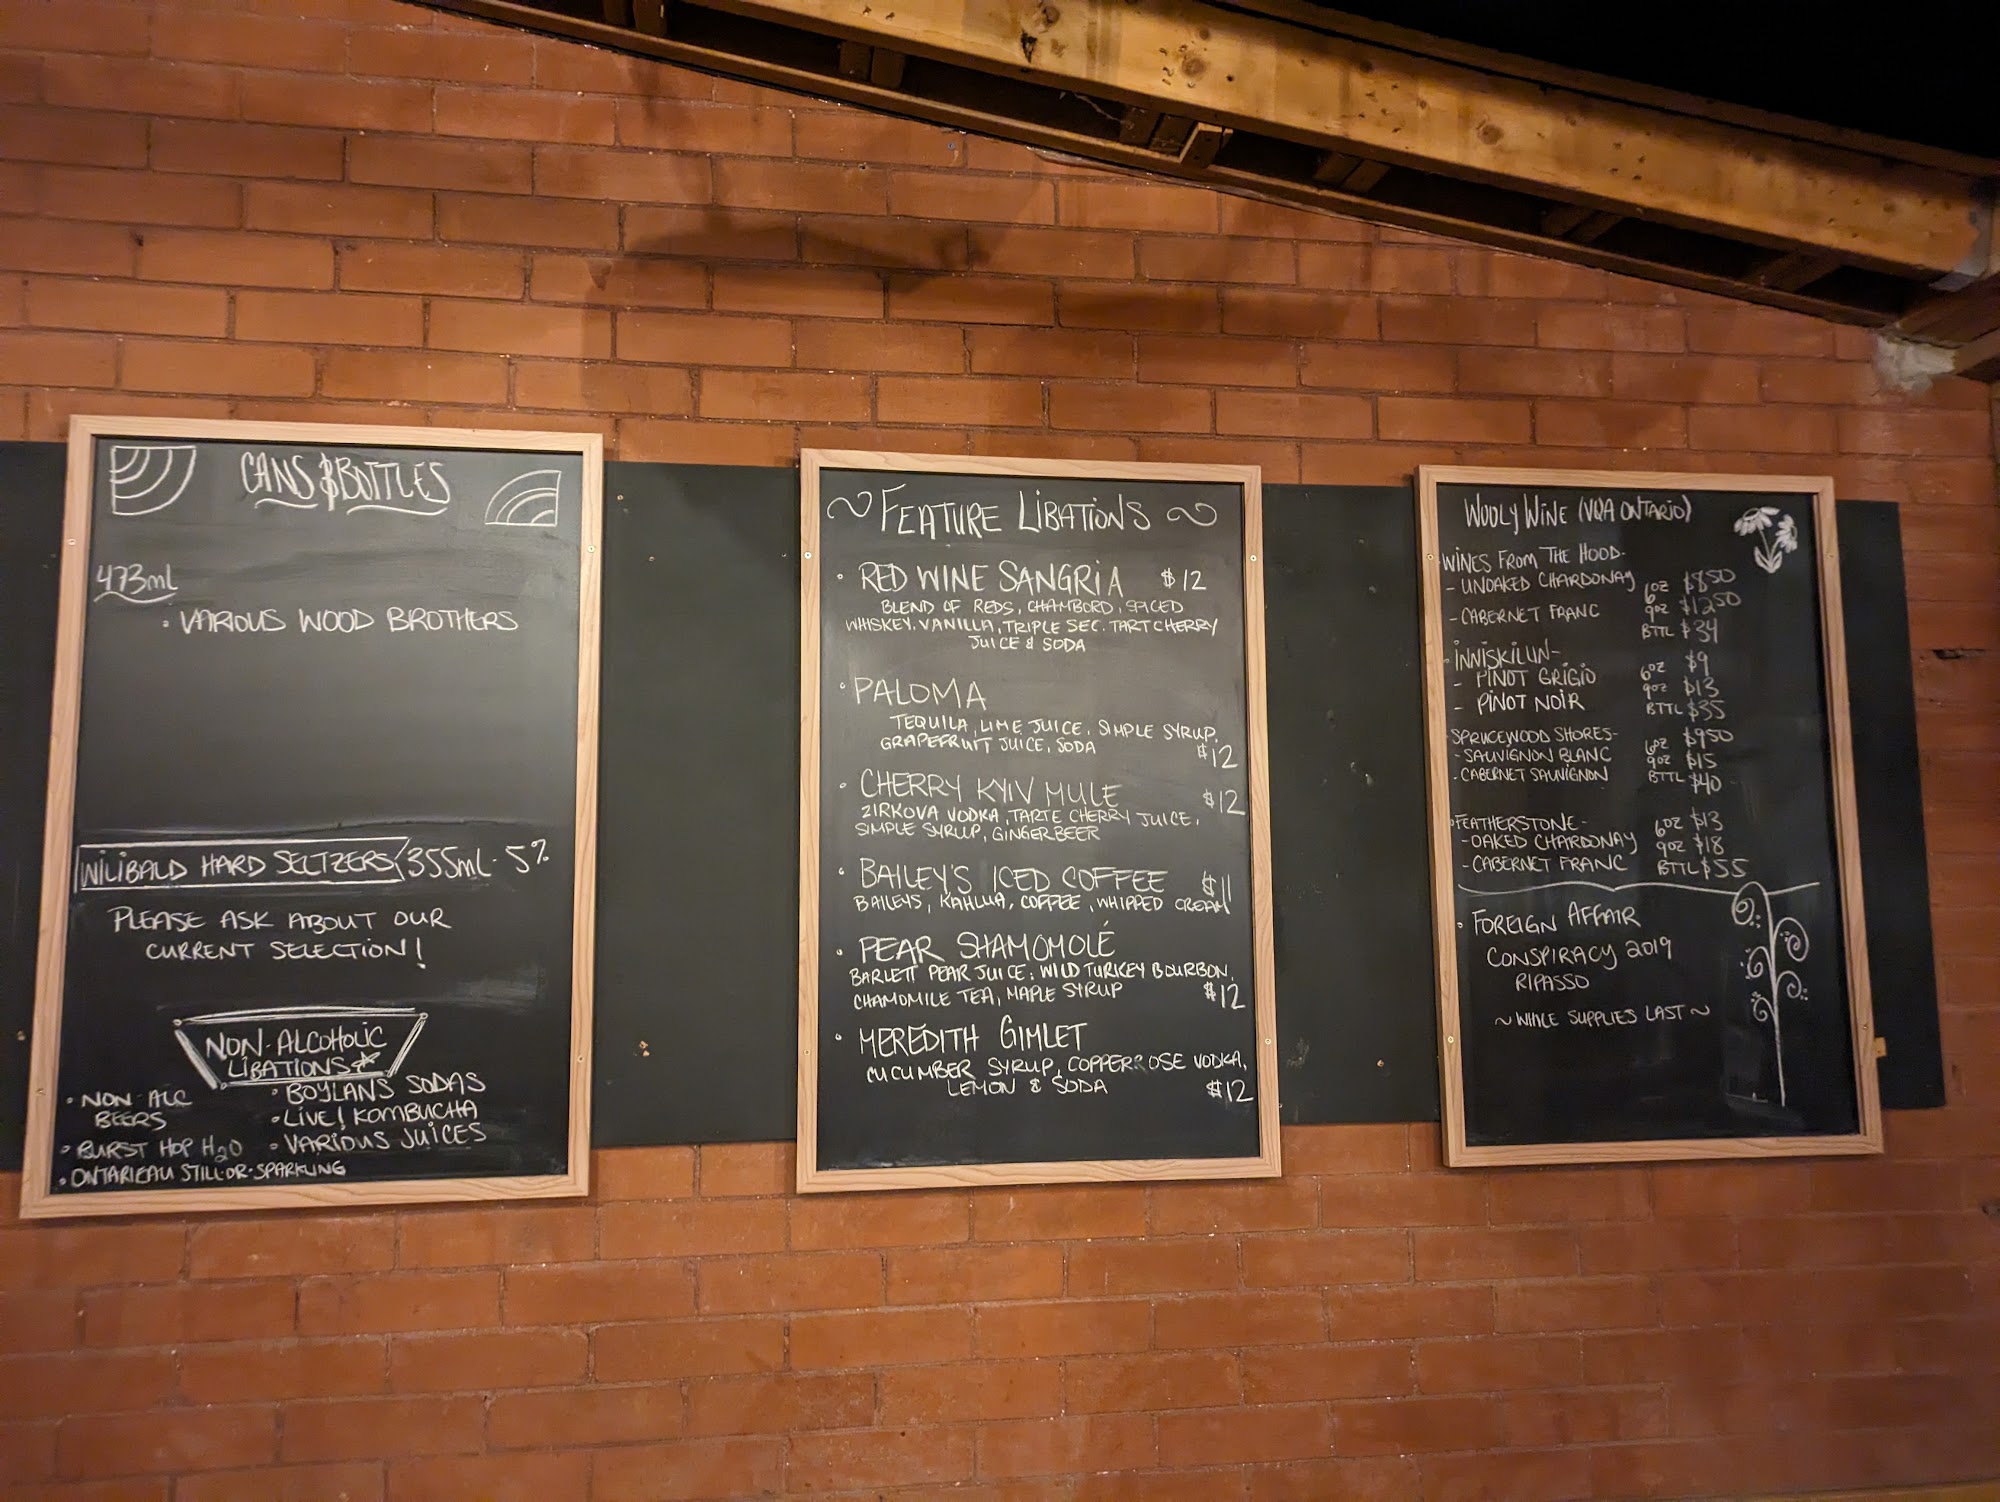 CANS & BOTTLES
473mL
• VARIOUS WOOD BROTHERS
WILIBALD HARD SELTZERS 355mL - 5%
PLEASE ASK ABOUT OUR
CURRENT SELECTION!
NON-ALCOHOLIC
LIBATIONS
• NON-ALC
BEERS
• BURST HOP H2O
• ONTARIEAU STILL-OR-SPARKLING
• BOYLANS SODAS
• LIVE! KOMBUCHA
• VARIOUS JUICES
~ FEATURE LIBATIONS ~
• RED WINE SANGRIA $12
BLEND OF REDS, CHAMBORD, SPICED
WHISKEY, VANILLA, TRIPLE SEC. TART CHERRY
JUICE & SODA
• PALOMA
TEQUILA, LIME JUICE, SIMPLE SYRUP,
GRAPEFRUIT JUICE, SODA $12
• CHERRY KYIV MULE $12
ZIRKOVA VODKA, TARTE CHERRY JUICE,
SIMPLE SYRUP, GINGERBEER
• BAILEY'S ICED COFFEE $11
BAILEYS, KAHLUA, COFFEE, WHIPPED CREAM
• PEAR SHAMOMOLÉ
BARLETT PEAR JUICE, WILD TURKEY BOURBON,
CHAMOMILE TEA, MAPLE SYRUP $12
• MEREDITH GIMLET
CUCUMBER SYRUP, COPPER OSE VODKA,
LEMON & SODA $12
WOOLY WINE (VQA ONTARIO)
WINES FROM THE HOOD-
- UNOAKED CHARDONAY 6oz $8.50
9oz $12.50
- CABERNET FRANC BTTL $34
• INNISKILLIN-
- PINOT GRIGIO 6oz $9
9oz $13
- PINOT NOIR BTTL $35
SPRUCEWOOD SHORES-
- SAUVIGNON BLANC 6oz $9.50
9oz $15
- CABERNET SAUVIGNON BTTL $40
• FEATHERSTONE- 6oz $13
- OAKED CHARDONAY 9oz $18
- CABERNET FRANC BTTL $55
• FOREIGN AFFAIR
CONSPIRACY 2019
RIPASSO
~ WHILE SUPPLIES LAST ~